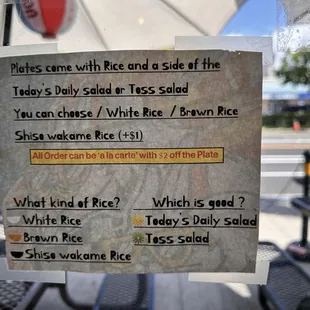 Plates come with Rice and a side of the
Today's Daily salad or Toss salad
You can choose / White Rice / Brown Rice
Shiso wakame Rice (+$1)
All Order can be 'a la carte' with $2 off the Plate
What kind of Rice?
White Rice
Brown Rice
Shiso wakame Rice
Which is good ?
Today's Daily salad
Toss salad